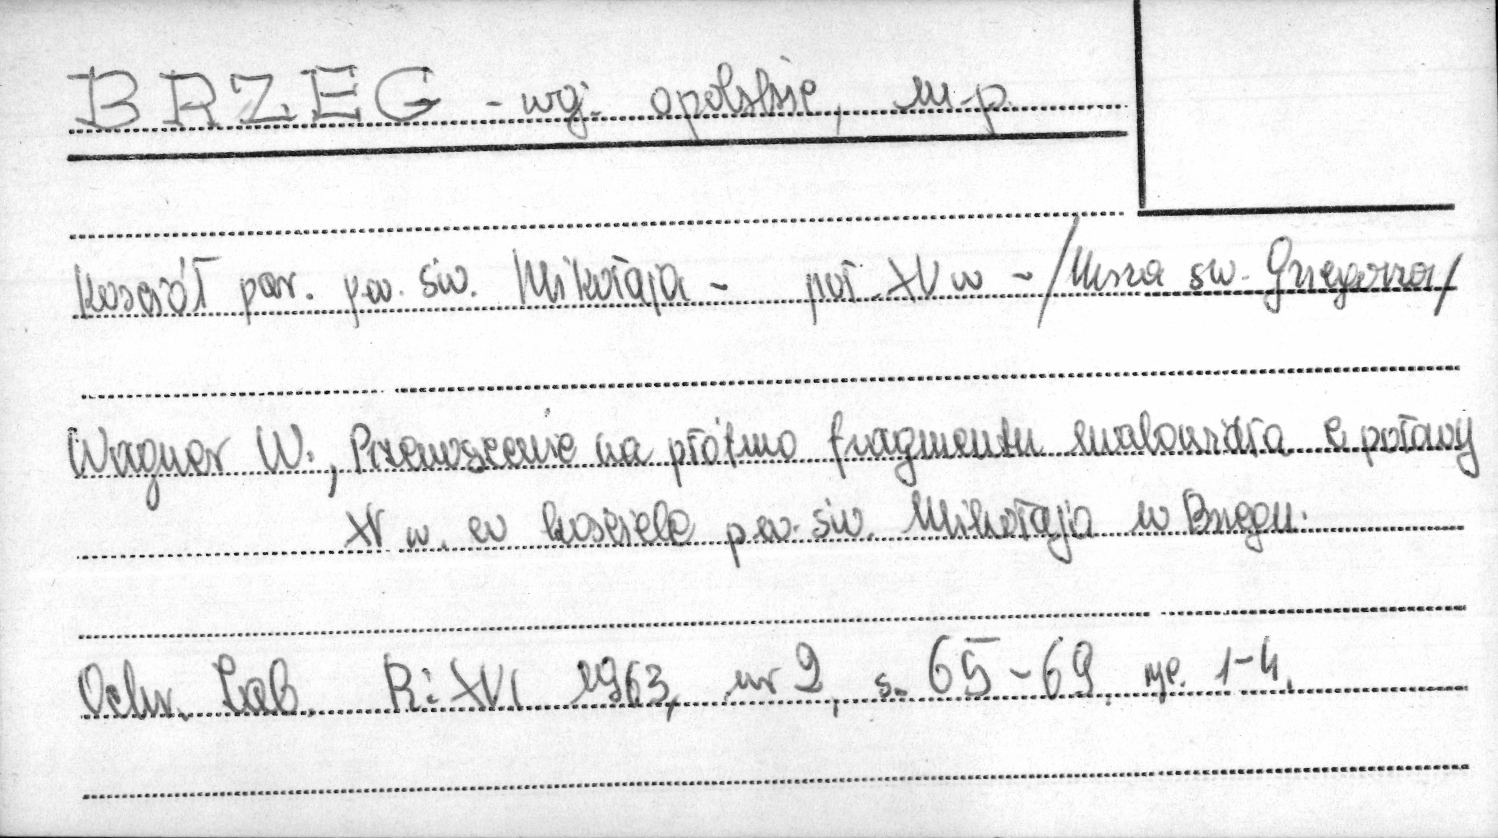 BRZEG - woj. opolskie, m.p.
Kościół par. p.w. św. Mikołaja - poł. XV w - /Msza św. Grzegorza/
Wagner W., Przenoszenie na płótno fragmentu malowidła z połowy
XV w. w kościele p.w. św. Mikołaja w Brzegu.
Ochr. Zab. R: XVI 1963, nr 2, s. 65-69, ryc. 1-4.